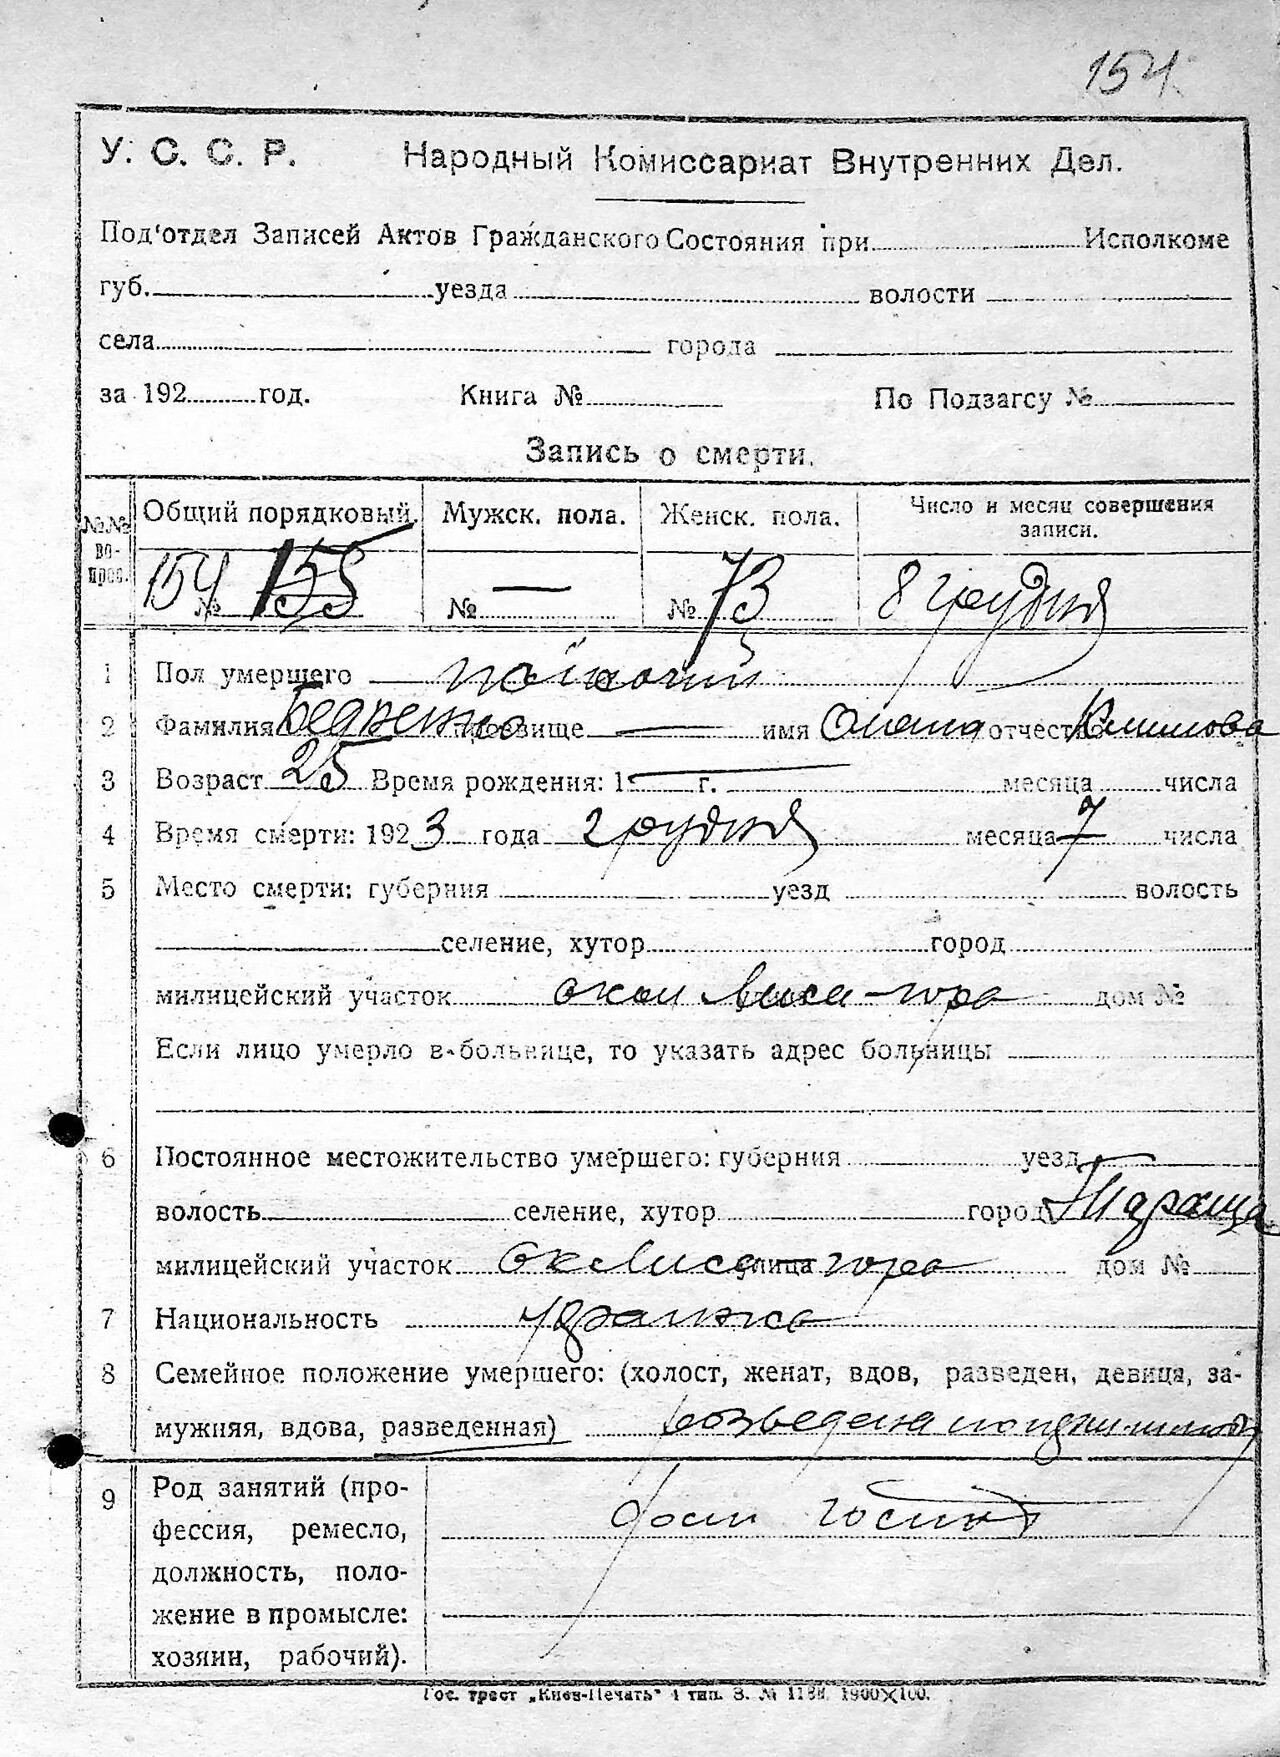 154
У. С. С. Р. Народный Комиссариат Внутренних Дел.
Под'отдел Записей Актов Гражданского Состояния при Исполкоме
губ. уезда волости
села города
за 192 год. Книга № По Подзагсу №
Запись о смерти.
№№ вопрос. Общий порядковый. Мужск. пола. Женск. пола. Число и месяц совершения записи.
154 № 155 № — № 73 8 грудня
1 Пол умершего жіночий
2 Фамилия прозвище — имя Олена отчество Климова
3 Возраст 25 Время рождения: 1 г. месяца числа
4 Время смерти: 1923 года грудня месяца 7 числа
5 Место смерти: губерния уезд волость
селение, хутор город
милицейский участок окол Лиса-гора дом №
Если лицо умерло в больнице, то указать адрес больницы
6 Постоянное местожительство умершего: губерния уезд
волость селение, хутор город Тараща
милицейский участок ок Лиса улица гора дом №
7 Национальность українка
8 Семейное положение умершего: (холост, женат, вдов, разведен, девица, за-
мужняя, вдова, разведенная) розведена
9 Род занятий (про-
фессия, ремесло,
должность, поло-
жение в промысле:
хозяин, рабочий).
Гос. трест „Киев-Печать" 4 тип. З. № 1900×100.